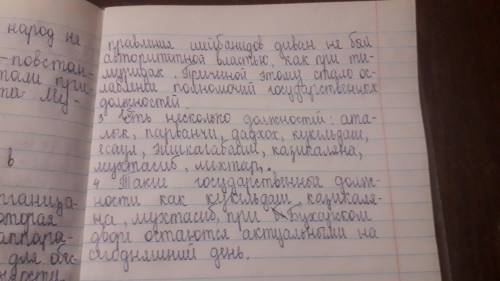 народ на
- повстан-
тами при-
та Му-
в
рганиза-
оторая
аппара-
для обе-
ности
правлния шейбанидов диван не был
авторититной властью, как при ти-
муридах. Причиной этому стало ос-
лавлении полномочий государственных
должностей.
3 Есть несколько должностей: ата-
лык, парванчи, дадхох, кукельдаш,
ясаул, эшикагабаши, казикаляна,
мухтасиб, мехтар,.
4 Такие государственный долж-
ности как кукельдаш казикаля-
на, мухтасиб, при Бухарском
дворе остаются актуальными на
сегодняшний день.